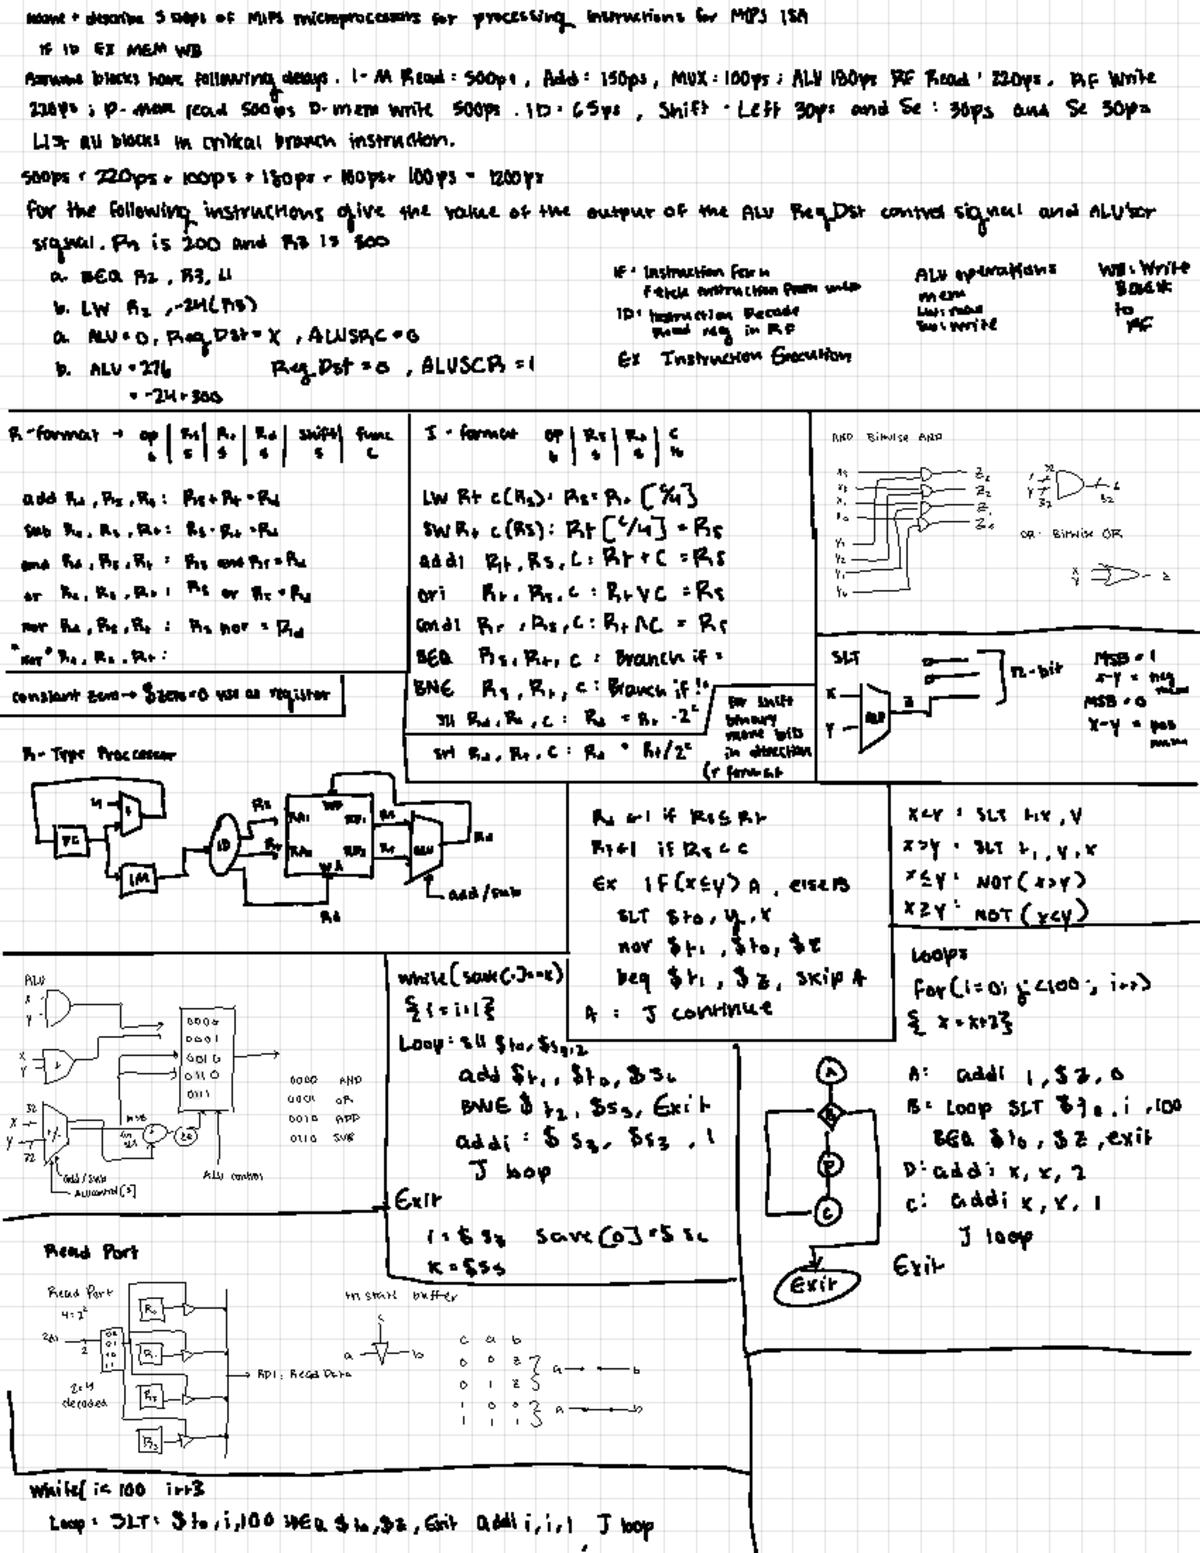 Name + describe 5 steps of MIPS microprocessors for processing instructions for MIPS ISA
IF ID EX MEM WB
Assume blocks have following delays. I-M Read: 500ps, Add: 150ps, MUX: 100ps; ALU 180ps RF Read: 220ps. RF Write
220ps; D-mem read 500ps D-mem write 500ps. ID: 65ps, Shift-Left 30ps and Se: 30ps and Se 30ps
List all blocks in critical branch instruction.
500ps + 220ps + 100ps + 180ps + 100ps + 100ps = 1200ps
For the following instructions give the value of the output of the ALU Reg Dst control signal and ALUscr
signal. R2 is 200 and R3 is 300
a. BEQ R2, R3, 4
b. LW R2, -24(R3)
a. ALU=0, Reg Dst=X, ALUSRC=0
b. ALU=276 Reg Dst=0, ALUSCR=1
= -24+300
IF: Instruction
Fetch instruction from
ID: Instruction Decode
Read reg in RF
EX Instruction Execution
ALU operations
mem
Sw: write
WB: Write
Back
to
RF
R-format → op | Rs | Rt | Rd | shift | func
6 5 5 5 5 6
add Rd, Rs, Rt: Rs+Rt=Rd
sub Rd, Rs, Rt: Rs-Rt=Rd
and Rd, Rs, Rt: Rs and Rt=Rd
or Rd, Rs, Rt: Rs or Rt=Rd
nor Rd, Rs, Rt: Rs nor = Rd
"nor" Rd, Rs, Rt:
constant zero → $zero=0 use as register
I-format op | Rs | Rt | C
6 5 5 16
LW Rt c(Rs): Rs=Rt [c/4]
SW Rt c(Rs): Rt [c/4] = Rs
addi Rt, Rs, C: Rt + C = Rs
ori Rt, Rs, c: Rt V C = Rs
andi Rt, Rs, C: Rt ∧ C = Rs
BEQ Rs, Rt, c: Branch if =
BNE Rs, Rt, c: Branch if !=
sll Rd, Rt, c: Rd = Rt · 2^c
srl Rd, Rt, c: Rd = Rt/2^c
for shift
binary
move bits
in direction
(r format
AND Bitwise AND
X3
X2
X1
X0
Y3
Y2
Y1
Y0
Z3
Z2
Z1
Z0
X
Y
32
32
OR: Bitwise OR
X
Y
Z
SLT
X
Y
ALU
Z
n-bit
MSB = 1
x-y = neg
num
MSB = 0
X-Y = pos
num
R-Type Processor
4
+
PC
IM
ID
Rs
Rt
RA1
RA2
WD
WA
RD1
RD2
Rs
Rt
ALU
Rd
add/sub
Rd
Rd ←1 if Rs≤Rt
Rt←1 if Rs<c
Ex if(x≤y) A, else B
SLT $t0, y, x
nor $t1, $t0, $z
beq $t1, $z, skip A
A: J continue
X<Y: SLT t,x,y
X>Y: SLT t1,y,x
X≤Y: NOT(x>y)
X≥Y: NOT(x<y)
ALU
X
Y
X
Y
X
Y
32
32
+/-
0000
0001
0010
0110
0111
0000 AND
0001 OR
0010 ADD
0110 SUB
add/sub
ALUcontrol[2]
ALU control
while(save[i]==k)
{i=i+1}
Loop: sll $t0,$s3,2
add $t1, $t0, $s6
BNE $t2, $s5, Exit
addi: $s3, $s3, 1
J loop
Exit
i=$s3 save[0]=$s6
k=$s5
Loops
for(i=0; i<100; i++)
{ x=x+2}
A: addi i,$z,0
B: Loop SLT $t0,i,100
BEQ $t0, $z, exit
D: addi x, x, 2
C: addi x, x, 1
J loop
Exit
A
B
D
C
Exit
Read Port
Read Port
4=2²
2
00
01
10
11
2:4
decoder
R0
R1
R2
R3
RD1: Read Data
tri state buffer
c
a b
c a b
0 0 z
0 1 z
1 0 0
1 1 1
a b
a b
while( i<100 i++}
Loop: SLT: $t0,i,100 BEQ $t0,$z, Exit addi i,i,1 J loop